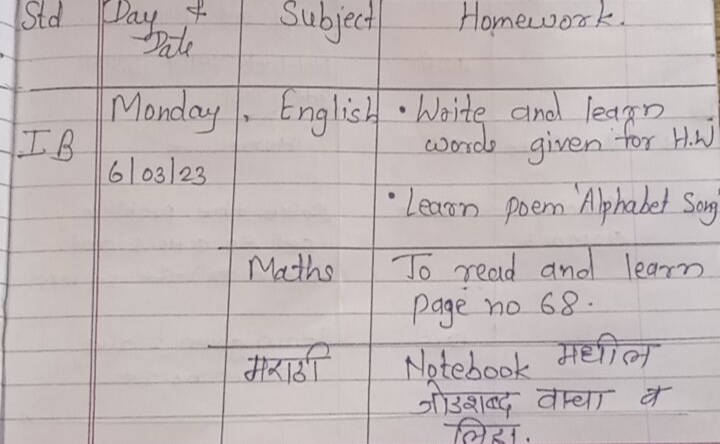 Std Day & Subject Homework.
Date
Monday, English • Write and learn
words given for H.W
I B
6/03/23
• Learn poem 'Alphabet Song'
Maths To read and learn
page no 68.
मराठी Notebook मधील
जोडशब्द वाचा व
लिहा.